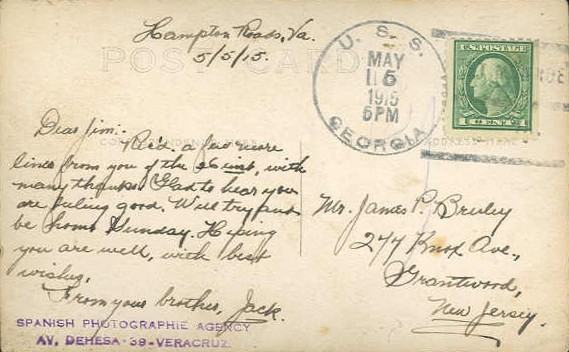 Hampton Roads, Va.
5/5/15.
POST CARD
U. S. S.
MAY
5
1915
5PM
GEORGIA
U.S. POSTAGE
1 CENT 1
Dear Jim:-
Rec'd a few more
lines from you of the 26 inst, with
many thanks. Glad to hear you
are feeling good. Will try and
be home Sunday. Hoping
you are well, with best
wishes,
From your brother, Jack.
Mr. James P.
247 Knox Ave.,
Grantwood,
New Jersey.
SPANISH PHOTOGRAPHIE AGENCY
AV. DEHESA-39-VERACRUZ.